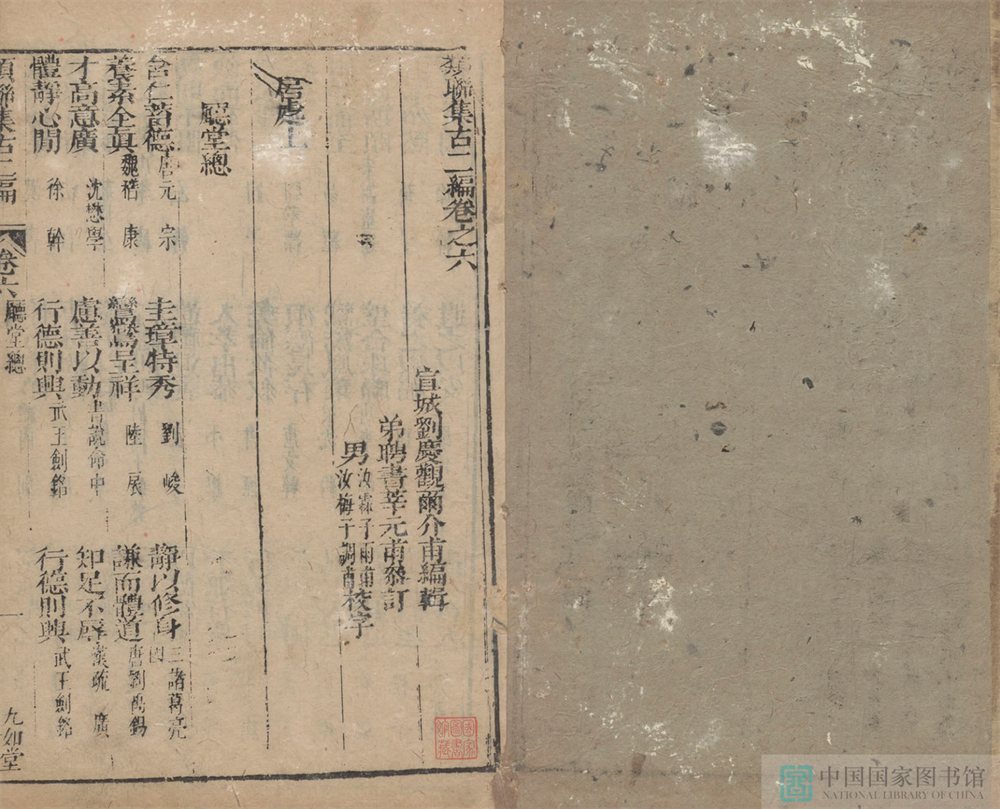 類聯集古二編卷之六
宣城劉慶觀爾介甫編輯
弟聘書莘元甫叅訂
男汝霖子雨甫
汝梅于調甫校字
居處上
廳堂總
含仁蓄德唐元宗
圭璋特秀劉峻
靜以修身三國諸葛亮
養素全眞魏嵇康
鸑鷟呈祥陸展
謙而體道唐劉禹錫
才高意廣沈懋學
慮善以動書說命中
知足不辱漢疏廣
體靜心閒徐幹
行德則興武王劍銘
行德則興武王劍銘
類聯集古二編
卷六
廳堂總
一
九如堂
中国国家图书馆
NATIONAL LIBRARY OF CHINA